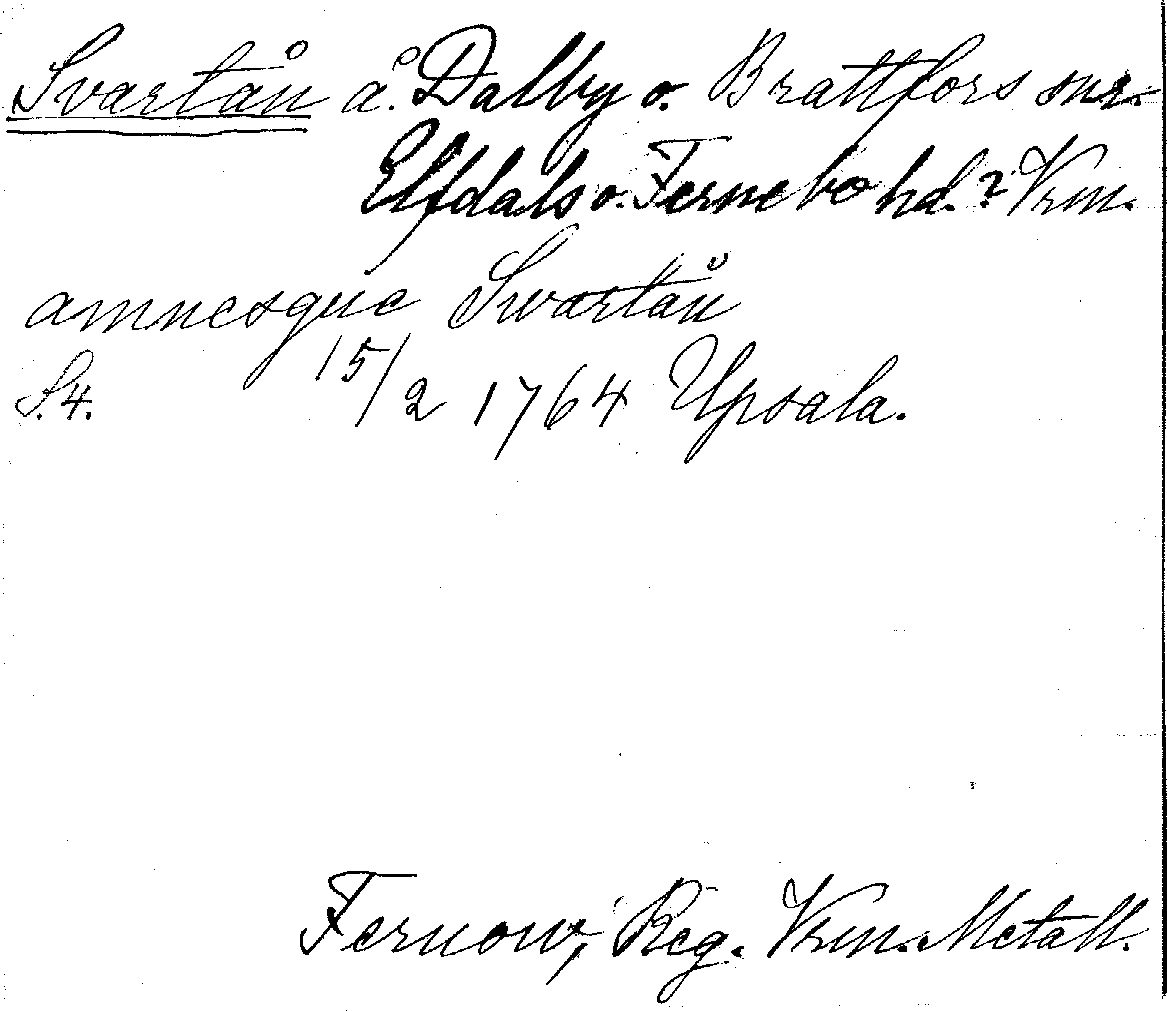 Svartån å. Dalby o. Brattfors snr.
Elfdals o. Fernebo hd.? Vrm.
amnesque Swartån
S. 4. 15/2 1764 Upsala.
Fernow, Reg. Vrm. Metall.